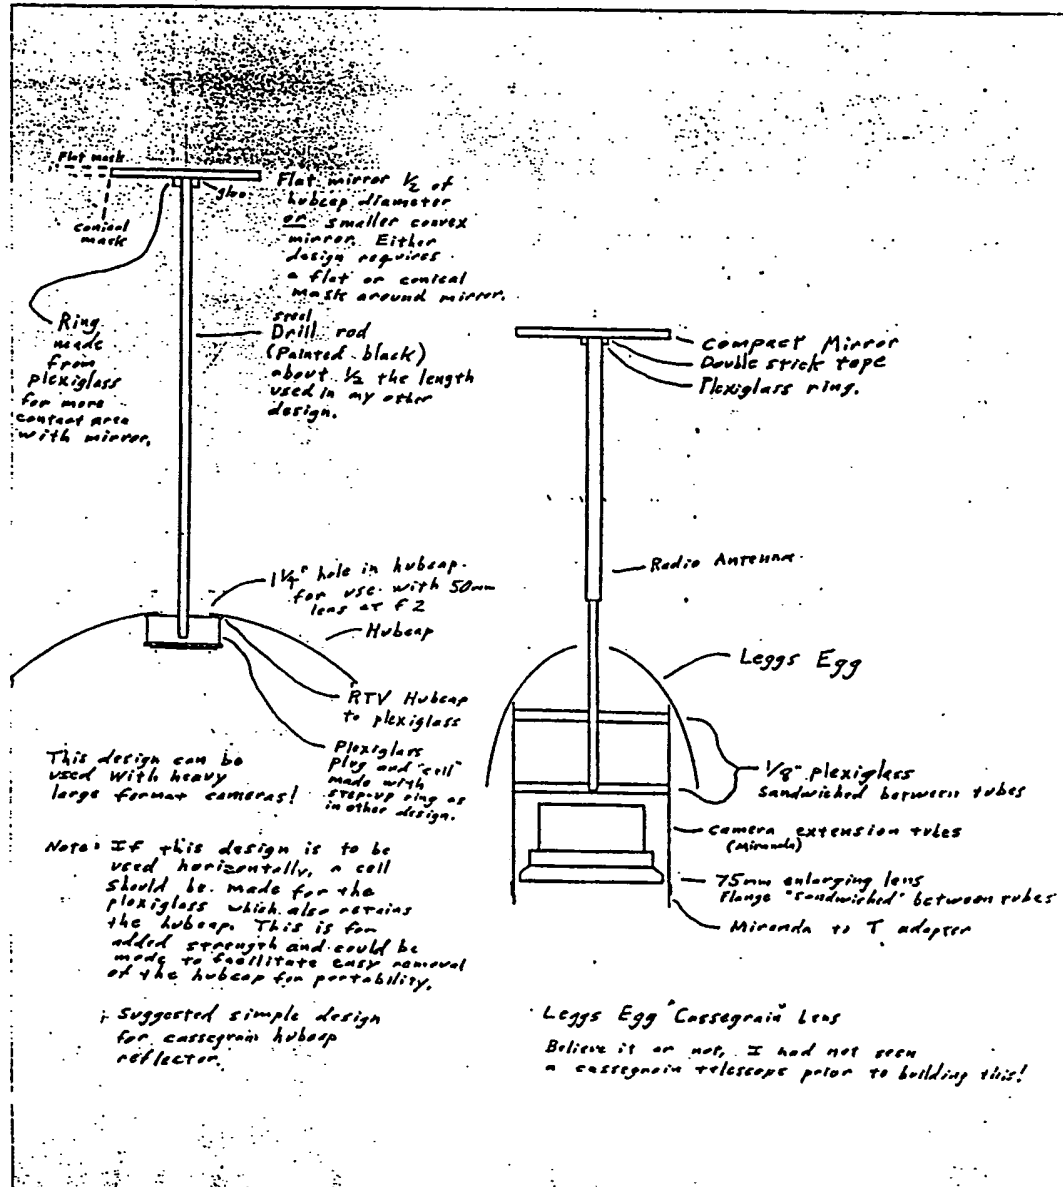 Flat mask
conical
mask
glue
Flat mirror 1/2 of
hubcap diameter
or smaller convex
mirror. Either
design requires
a flat or conical
mask around mirror.
Ring
made
from
plexiglass
for more
contact area
with mirror.
steel
Drill rod
(Painted black)
about 1/2 the length
used in my other
design.
1 1/4" hole in hubcap
for use with 50mm
lens at f2
Hubcap
RTV Hubcap
to plexiglass
Plexiglass
plug and "cell"
made with
step-up ring as
in other design.
This design can be
used with heavy
large format cameras!
Note: If this design is to be
used horizontally, a cell
should be made for the
plexiglass which also retains
the hubcap. This is for
added strength and could be
made to facilitate easy removal
of the hubcap for portability.
Suggested simple design
for cassegrain hubcap
reflector.
Compact Mirror
Double stick tape
Plexiglass ring.
Radio Antenna
Leggs Egg
1/8" plexiglass
Sandwiched between tubes
Camera extension tubes
(Miranda)
75mm enlarging lens
Flange "Sandwiched" between tubes
Miranda to T adapter
Leggs Egg "Cassegrain" Lens
Believe it or not, I had not seen
a cassegrain telescope prior to building this!